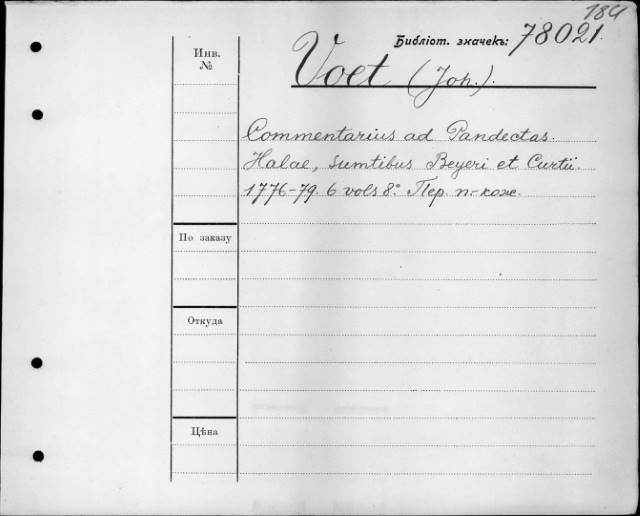 184
Библіот. значекъ: 78021.
Инв.
№
Voet (Joh.).
Commentarius ad Pandectas.
Halae, sumtibus Beyeri et Curtii.
1776-79. 6 vols 8.° Пер. п.-кож.
По заказу
Откуда
Цѣна